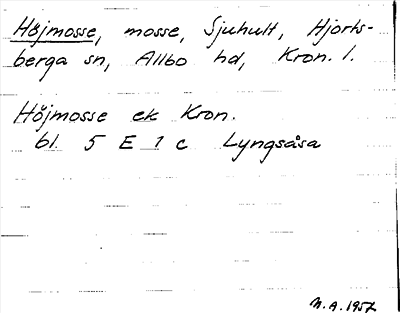 Höjmosse, mosse, Sjuhult, Hjorts-
berga sn, Allbo hd, Kron. l.
Höjmosse ek Kron.
bl. 5 E 1 c Lyngsåsa
N.A. 1957